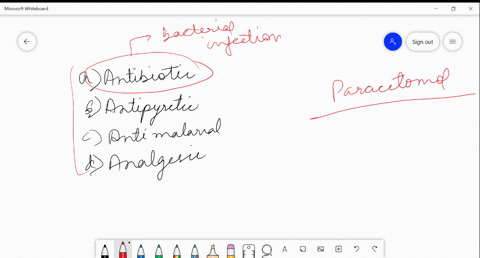 Microsoft Whiteboard
Sign out
bacterial
injection
a) Antibiotic
b) Antipyretic
c) Antimalarial
d) Analgesic
Paracetomol